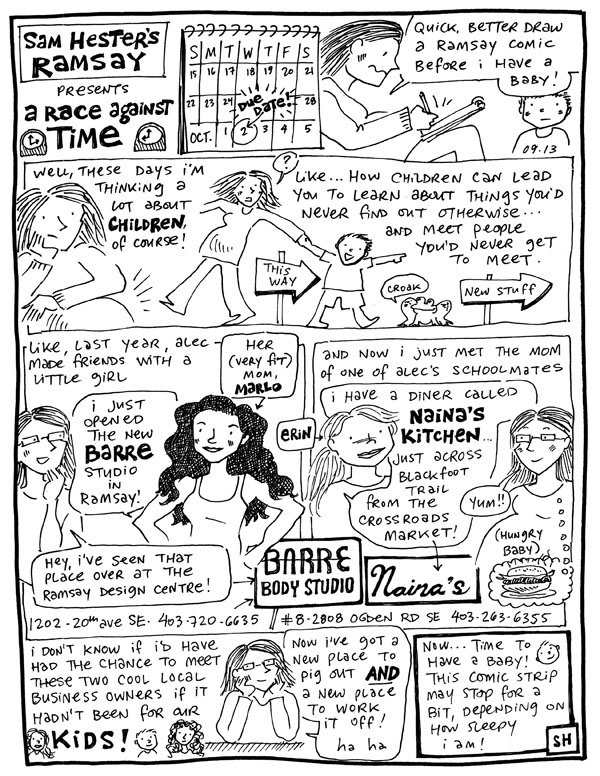 SAM HESTER'S
RAMSAY
PRESENTS
a RACE against
TIME
S M T W T F S
15 16 17 18 19 20 21
22 23 24 28
DUE
DATE!
OCT. 1 2 3 4 5
QUICK, BETTER DRAW
A RAMSAY COMIC
BEFORE i HAVE A
BABY!
09.13
WELL, THESE DAYS i'M
THINKING A
LOT ABOUT
CHILDREN,
OF COURSE!
?
LIKE... HOW CHILDREN CAN LEAD
YOU TO LEARN ABOUT THINGS YOU'D
NEVER FIND OUT OTHERWISE...
AND MEET PEOPLE
YOU'D NEVER GET
TO MEET.
THIS
WAY
CROAK
NEW STUFF
LIKE, LAST YEAR, ALEC
MADE FRIENDS WITH A
LITTLE GIRL
HER
(VERY FIT)
MOM,
MARLO
i JUST
OPENED
THE NEW
BARRE
STUDIO
IN
RAMSAY!
HEY, i'VE SEEN THAT
PLACE OVER AT THE
RAMSAY DESIGN CENTRE!
BARRE
BODY STUDIO
1202-20th AVE SE. 403-720-6635
AND NOW i JUST MET THE MOM
OF ONE OF ALEC'S SCHOOLMATES
ERIN
i HAVE A DINER CALLED
NAINA'S
KITCHEN...
JUST ACROSS
BLACKFOOT
TRAIL
FROM THE
CROSSROADS
MARKET!
YUM!!
(HUNGRY
BABY)
Naina's
#8-2808 OGDEN RD SE 403-263-6355
i DON'T KNOW iF i'D HAVE
HAD THE CHANCE TO MEET
THESE TWO COOL LOCAL
BUSINESS OWNERS iF iT
HADN'T BEEN FOR OUR
KiDS!
NOW i'VE GOT A
NEW PLACE TO
PIG OUT AND
A NEW PLACE
TO WORK
iT OFF!
ha ha
NOW... TIME TO
HAVE A BABY!
THIS COMIC STRIP
MAY STOP FOR A
BIT, DEPENDING ON
HOW SLEEPY
i AM!
SH